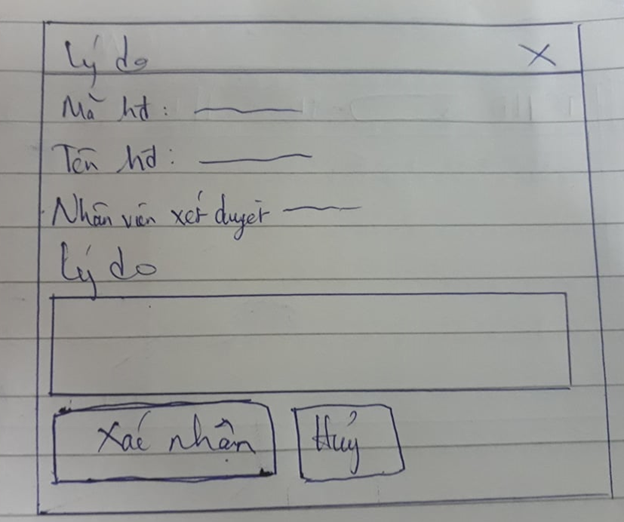 Lý do X
Mã hđ:
Tên hđ:
Nhân viên xét duyệt
Lý do
Xác nhận Huỷ